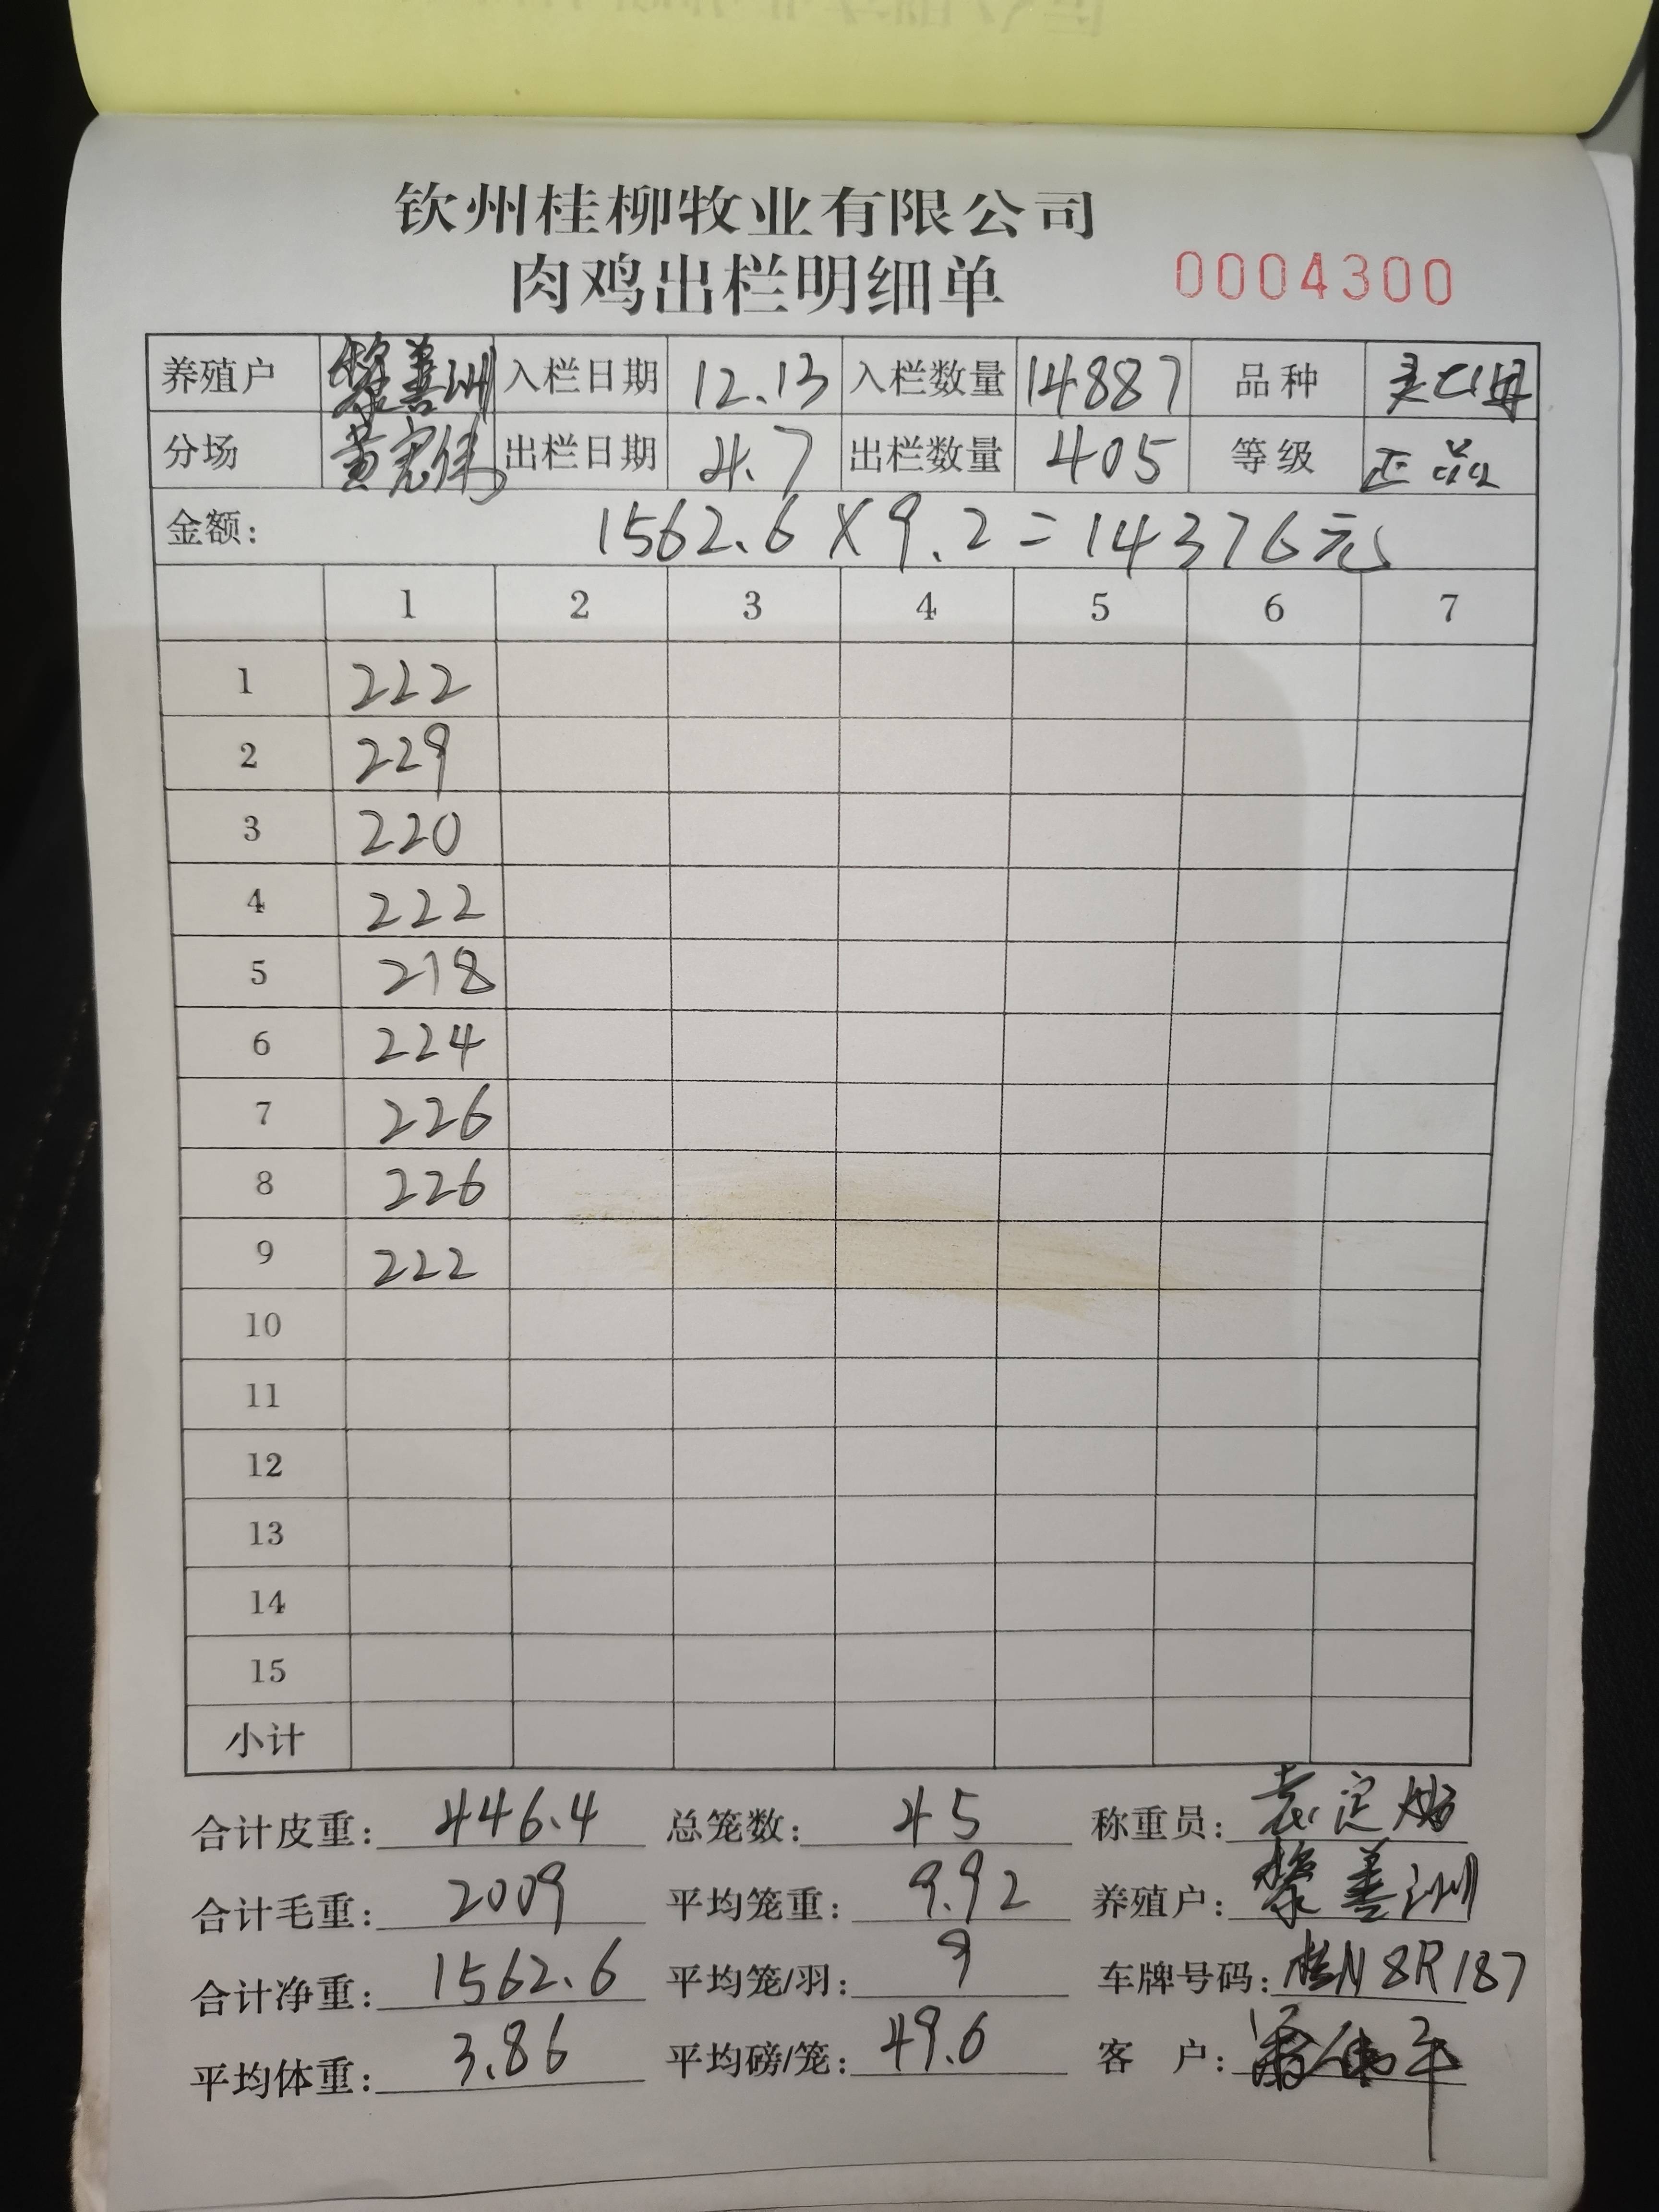 钦州桂柳牧业有限公司
肉鸡出栏明细单 0004300
养殖户 黎善洲 入栏日期 12.13 入栏数量 14887 品种
分场 黄宏伟 出栏日期 4.7 出栏数量 405 等级 正品
金额: 1562.6×9.2=14376元
1 2 3 4 5 6 7
1 222
2 229
3 220
4 222
5 218
6 224
7 226
8 226
9 222
10
11
12
13
14
15
小计
合计皮重: 446.4 总笼数: 45 称重员:
合计毛重: 2009 平均笼重: 9.92 养殖户: 黎善洲
合计净重: 1562.6 平均笼/羽: 9 车牌号码: 桂N8R187
平均体重: 3.86 平均磅/笼: 49.6 客 户: